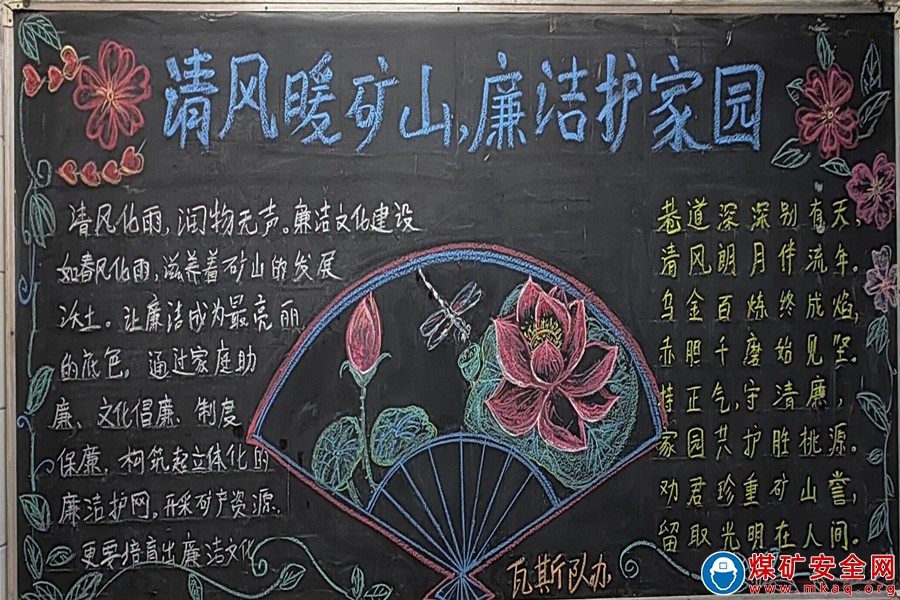 清风暖矿山,廉洁护家园
清风化雨,润物无声。廉洁文化建设
如春风化雨,滋养着矿山的发展
沃土。让廉洁成为最亮丽
的底色,通过家庭助
廉、文化倡廉、制度
保廉,构筑起立体化的
廉洁护网,开采矿产资源、
更要培育出廉洁文化
巷道深深别有天,
清风朗月伴流年。
乌金百炼终成焰,
赤胆千磨始见坚。
持正气,守清廉,
家园共护胜桃源。
劝君珍重矿山誉,
留取光明在人间。
瓦斯队办
煤矿安全网
www.mkaq.org